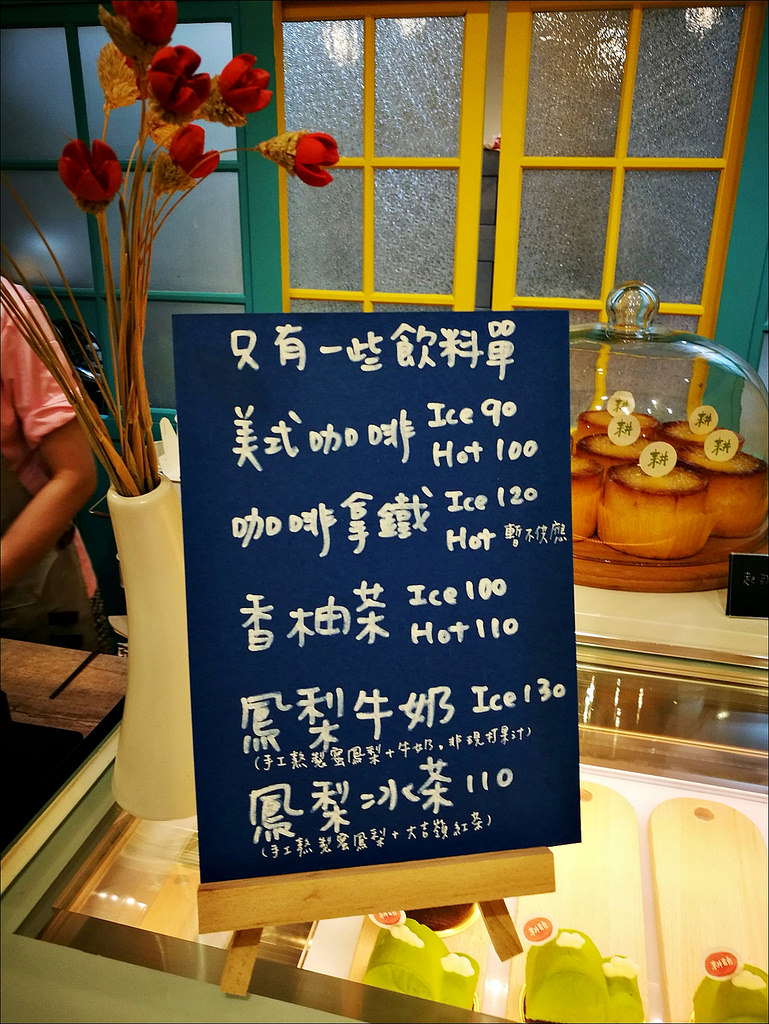 只有一些飲料單
美式咖啡 Ice 90
Hot 100
咖啡拿鐵 Ice 120
Hot 暫不供應
香柚茶 Ice 100
Hot 110
鳳梨牛奶 Ice 130
(手工熬製蜜鳳梨+牛奶。非現打果汁)
鳳梨冰茶 110
(手工熬製蜜鳳梨+大吉嶺紅茶)
耕
耕
耕
耕
耕